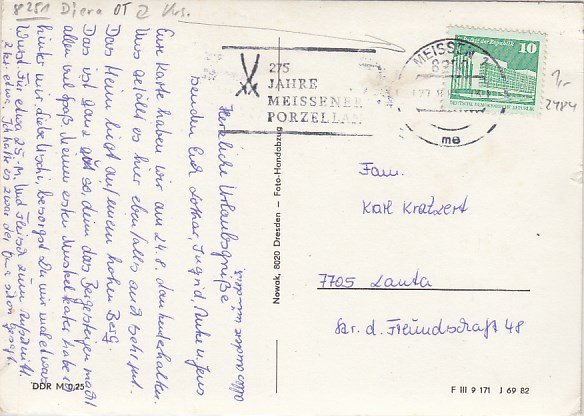 8251 Diera OT Z
275
JAHRE
MEISSENER
PORZELLAN
MEISSEN 2
82
me
Palast der Republik 10
1,-
2484
Herzliche Urlaubsgrüße
senden Euch Lothar, Ingrid, Anke u. Jens
Eure Karte haben wir am 24.8. dankend erhalten.
Uns gefällt es hier ebenfalls auch sehr gut.
Das Heim liegt auf einem hohen Berg.
Das ist ganz gut so, denn das Bergsteigen macht
allen viel Spaß. Meinen ersten Muskelkater habe ich
hinter mir. Liebe Uschi, besorgst Du mir mal etwas
Wurst für etwa 25,- M. Und Fleisch zum
2 kg etwa. Ich hatte es zwar der Oma schon gesagt.
Nowak, 8020 Dresden – Foto-Handabzug
Fam.
Karl Kratzert
7705 Lauta
Str. d. Freundschaft 48
DDR M 0,25
F III 9 171 J 69 82